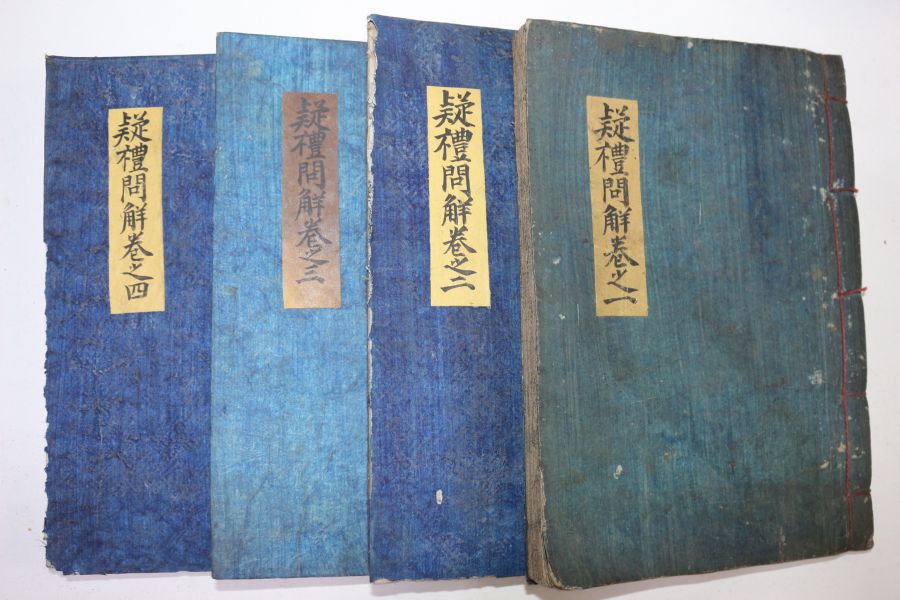 疑禮問解卷之一
疑禮問解卷之二
疑禮問解卷之三
疑禮問解卷之四